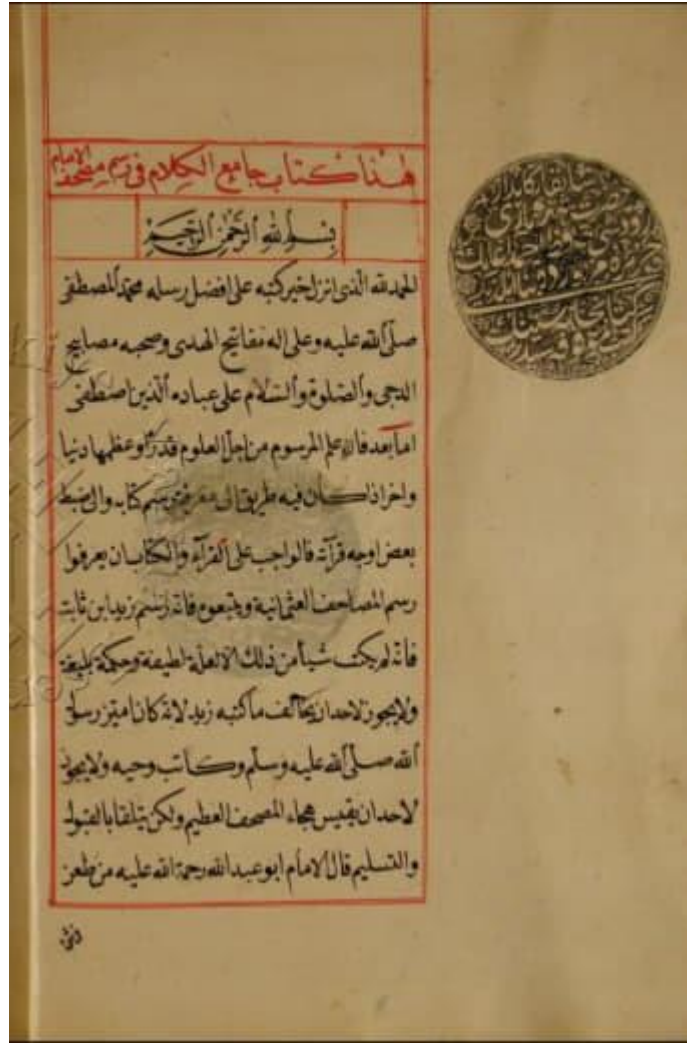 هذا كتاب جامع الكلام في رسم مصحف الامام
بسم الله الرحمن الرحيم
الحمد لله الذى انزل خير كتبه على افضل رسله محمد المصطفى
صلى الله عليه وعلى اله مفاتيح الهدى وصحبه مصابيح
الدجى والصلوة والسلام على عباده الذين اصطفى
اما بعد فان علم المرسوم من اجل العلوم قدرا وعظمها دنيا
واخرا اذ كان فيه طريق الى معرفة رسم كتابه والى ضبط
بعض اوجه قرآته فالواجب على القرآء والكتاب ان يعرفوا
رسم المصاحف العثمانية ويتبعوه فانه رسم زيد ابن ثابت
فانه لم يكتب شيأ من ذلك الا لعلة لطيفة وحكمة بليغة
ولا يجوز لاحد ان يخالف ما كتبه زيد لانه كان امين رسول
الله صلى الله عليه وسلم وكاتب وحيه ولا يجوز
لاحد ان يقيس هجاء المصحف العظيم ولكن يتلقا بالقبول
والتسليم قال الامام ابو عبد الله رحمة الله عليه من طعن